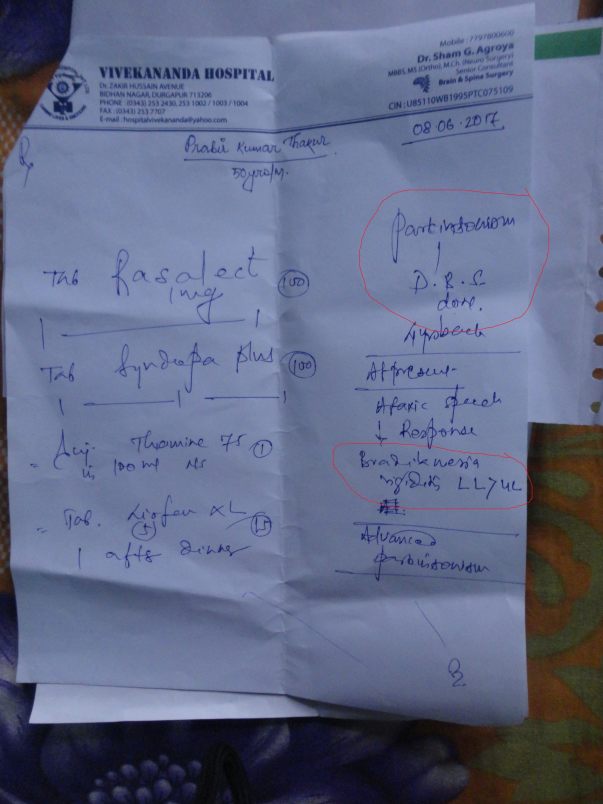 VIVEKANANDA HOSPITAL
Dr. ZAKIR HUSSAIN AVENUE
BIDHAN NAGAR, DURGAPUR 713206
PHONE : (0343) 253 2430, 253 1002 / 1003 / 1004
FAX : (0343) 253 7707
E-mail : hospitalvivekananda@yahoo.com
Mobile : 7797800600
Dr. Sham G. Agroya
MBBS, MS (Ortho), M.Ch. (Neuro Surgery)
Senior Consultant
Brain & Spine Surgery
CIN : U85110WB1995PTC075109
08.06.2017
Prabir Kumar Thakur
50yrs/M.
Tab Rasalect 100
1mg
1 1
Tab Syndopa plus 100
1 1 1
Inj. Thiamine 75 1
in 100 ml NS
Tab. Liofen XL 15
1 after dinner
Parkinsonism
D.B.S.
done.
4yrs back
At present
Afaxic speech
↓ Response
Bradiknesia
rigidity LL>UL
Advanced
parkinsonism